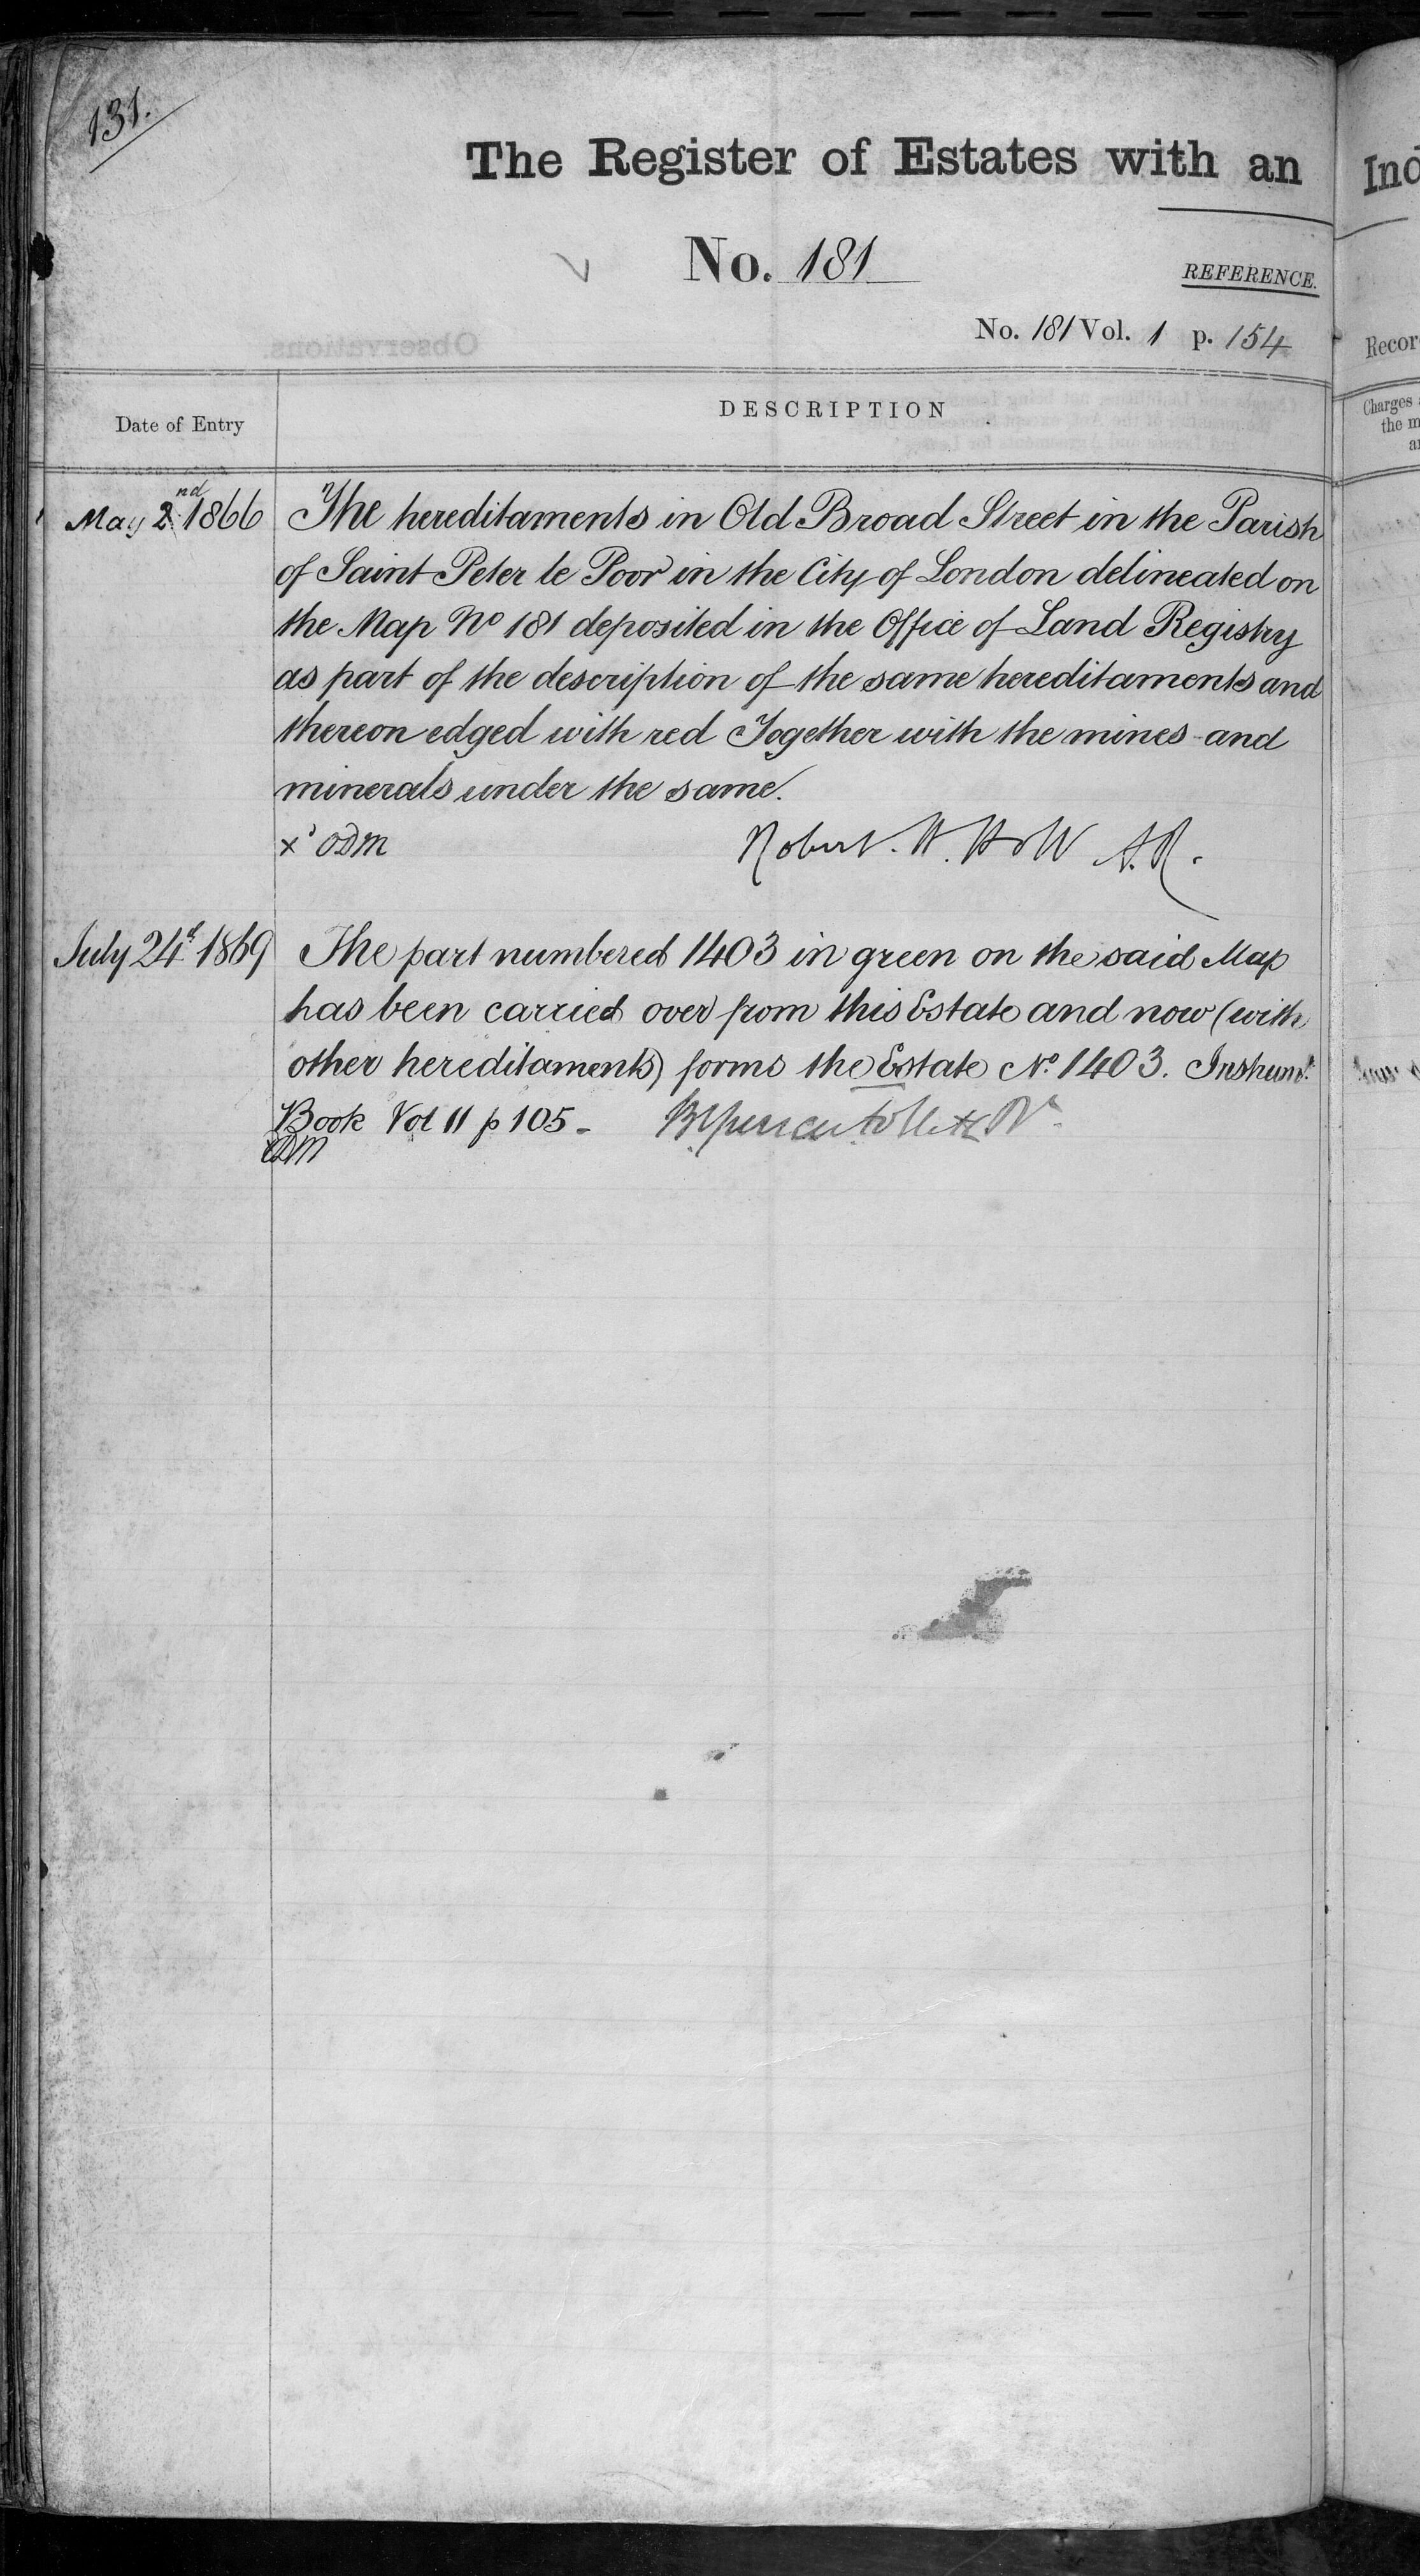 131.
The Register of Estates with an
Ind
No. 181
REFERENCE.
No. 181 Vol. 1 p. 154
Recor
Observations.
Date of Entry
DESCRIPTION
Charges
the m
May 2nd 1866 The hereditaments in Old Broad Street in the Parish
of Saint Peter le Poor in the City of London delineated on
the Map No 181 deposited in the Office of Land Registry
as part of the description of the same hereditaments and
thereon edged with red Together with the mines and
minerals under the same.
Robert. H. Holt A.R.
July 24th 1869 The part numbered 1403 in green on the said Map
has been carried over from this Estate and now (with
other hereditaments) forms the Estate No. 1403. Instrumt.
Book Vol 11 p 105 -